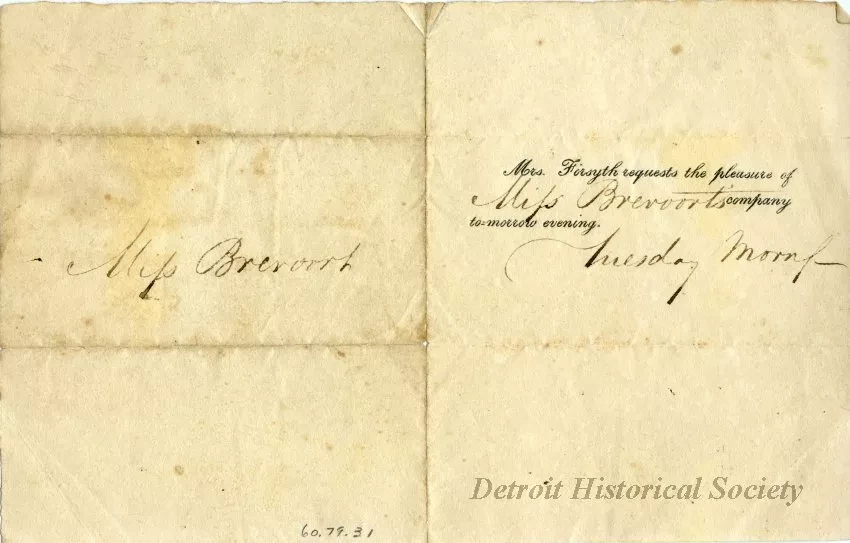 Miss Brevoort
60.79.31
Mrs. Forsyth requests the pleasure of
Miss Brevoort's company
to-morrow evening.
Tuesday Morng
Detroit Historical Society